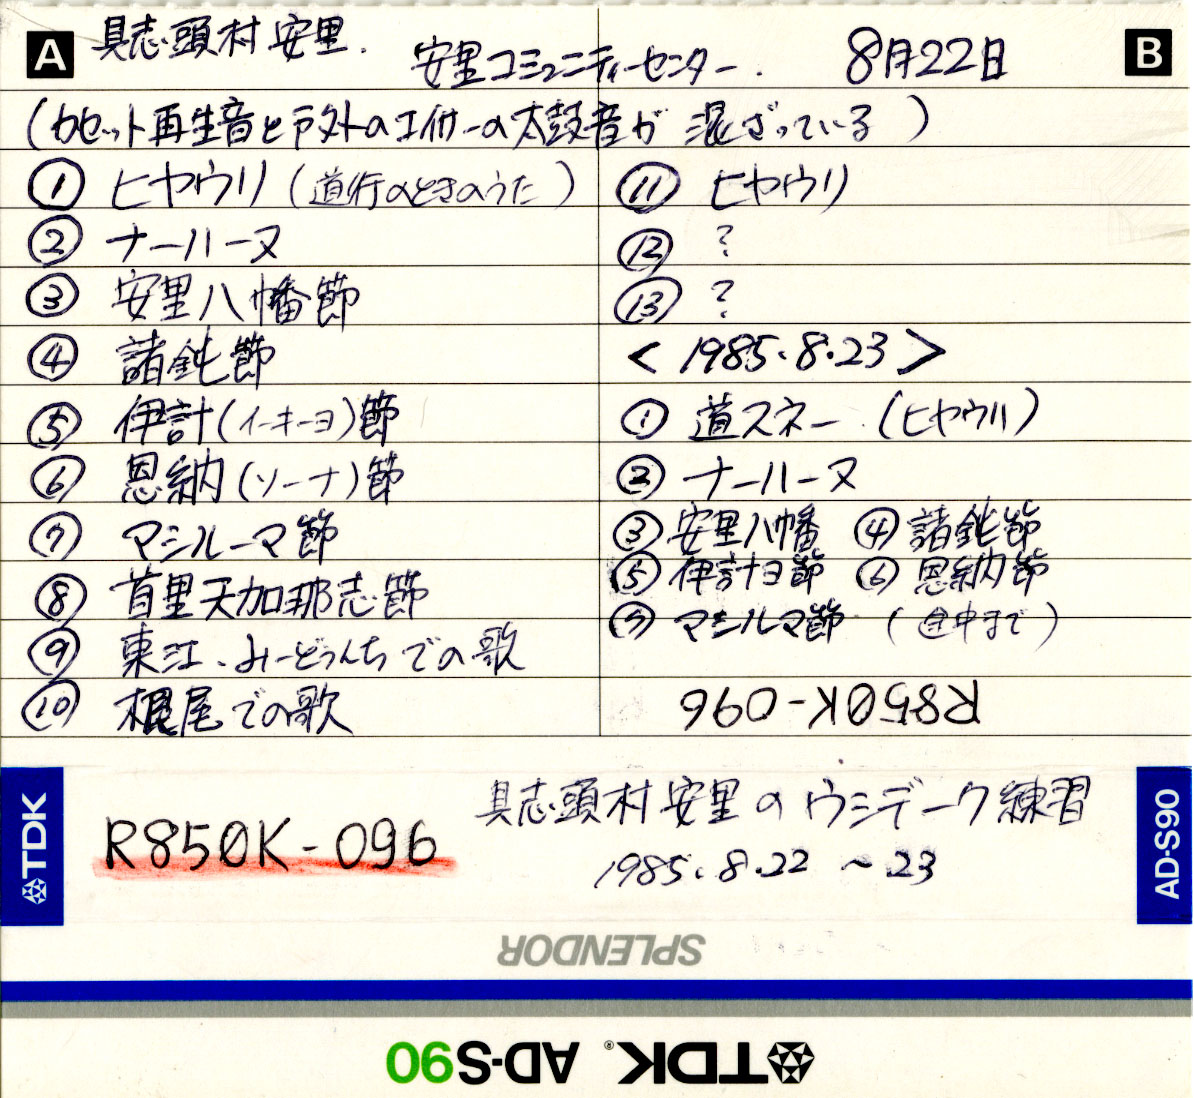 A 具志頭村安里. 安里コミュニティーセンター. 8月22日 B
(カセット再生音と戸外のエイサーの太鼓音が 混ざっている)
① ヒヤウリ (道行のときのうた)
② ナーハーヌ
③ 安里八幡節
④ 諸鈍節
⑤ 伊計(イーキーヨ)節
⑥ 恩納(ソーナ)節
⑦ マシルーマ節
⑧ 首里天加那志節
⑨ 東江、みーどぅんち での歌
⑩ 根尾での歌
⑪ ヒヤウリ
⑫ ?
⑬ ?
< 1985.8.23 >
① 道スネー (ヒヤウリ)
② ナーハーヌ
③ 安里八幡 ④ 諸鈍節
⑤ 伊計ヨ節 ⑥ 恩納節
⑦ マシルマ節 (途中まで)
R850K-096
TDK
R850K-096
具志頭村安里のウシデーク練習
1985.8.22 ~ 23
AD-S90
SPLENDOR
TDK® AD-S90